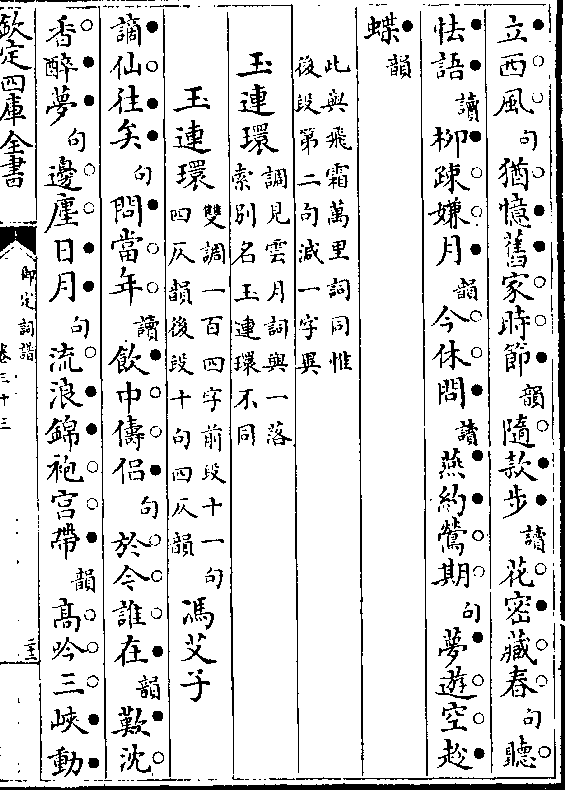 立西風句猶憶舊家時節韻隨款步讀花密藏春句聽
怯語讀柳疎嫌月韻今休問讀燕約鶯期句夢遊空趁
蝶韻
此與飛霜萬里詞同惟
後段第二句減一字異
玉連環調見雲月詞與一落
索別名玉連環不同
玉連環雙調一百四字前段十一句
四仄韻後段十句四仄韻馮艾子
謫仙往矣句問當年讀飲中儔侶句於今誰在韻歎沈
香醉夢句邊塵日月句流浪錦袍宮帶韻高吟三峽動
欽定四庫全書
御定詞譜
卷三十三
二十三